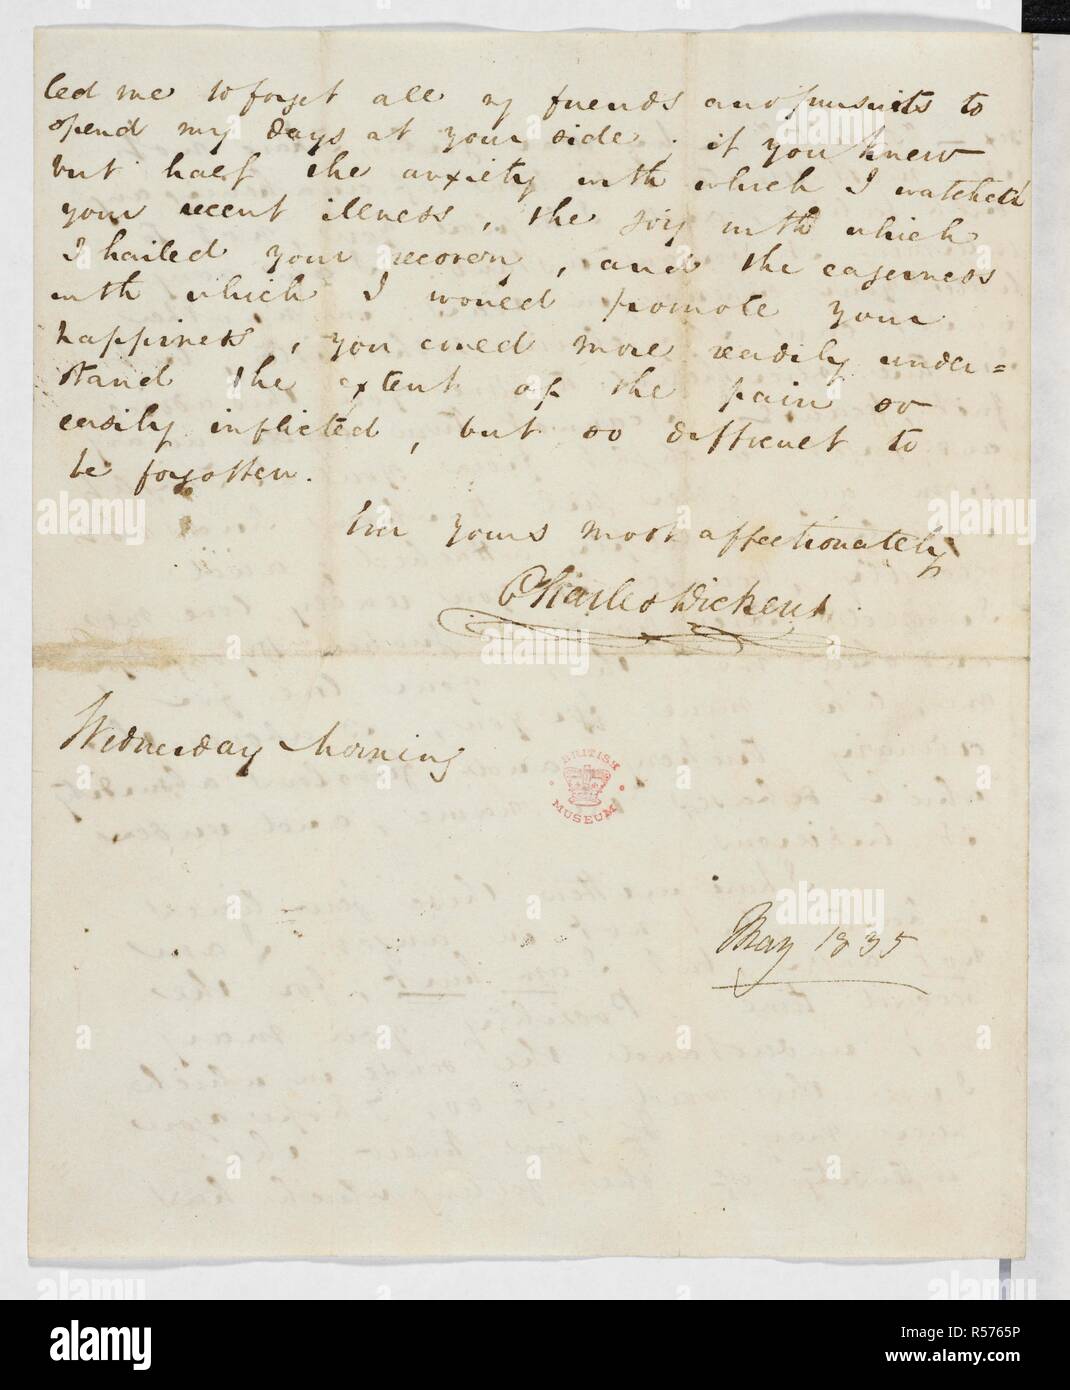 led me to forget all my friends and pursuits to
spend my days at your side; if you knew
but half the anxiety with which I watched
your recent illness, the joy with which
I hailed your recovery, and the eagerness
with which I would promote your
happiness, you could more readily under=
stand the extent of the pain so
easily inflicted, but so difficult to
be forgotten.
Ever yours most affectionately
Charles Dickens
Wednesday Morning
BRITISH
MUSEUM
May 1835
alamy
alamy
www.alamy.com
Image ID: R5765P